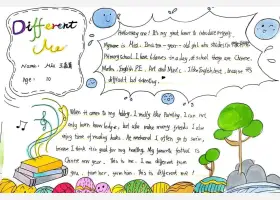 Different
Me
Name: Mia 王嘉蕙
Age: 10
Hello, boy me! It's my great honor to introduce myself.
My name is Mia. I'm a ten-year-old girl who studies in
Primary School. I have 6 classes in a day, at school there are Chinese,
Maths, English, P.E., Art and Music. I like English best, because it's
difficult but interesting.
When it comes to my hobby, I really like Painting. I can not
only learn knowledge, but also make many friends. I also
enjoy time of reading books. At weekend I often go to swim,
because I think it is good for my healthy. My favorite festival is
Chinese new year. This is me. I am different from
you, from her, from him. This is different me!